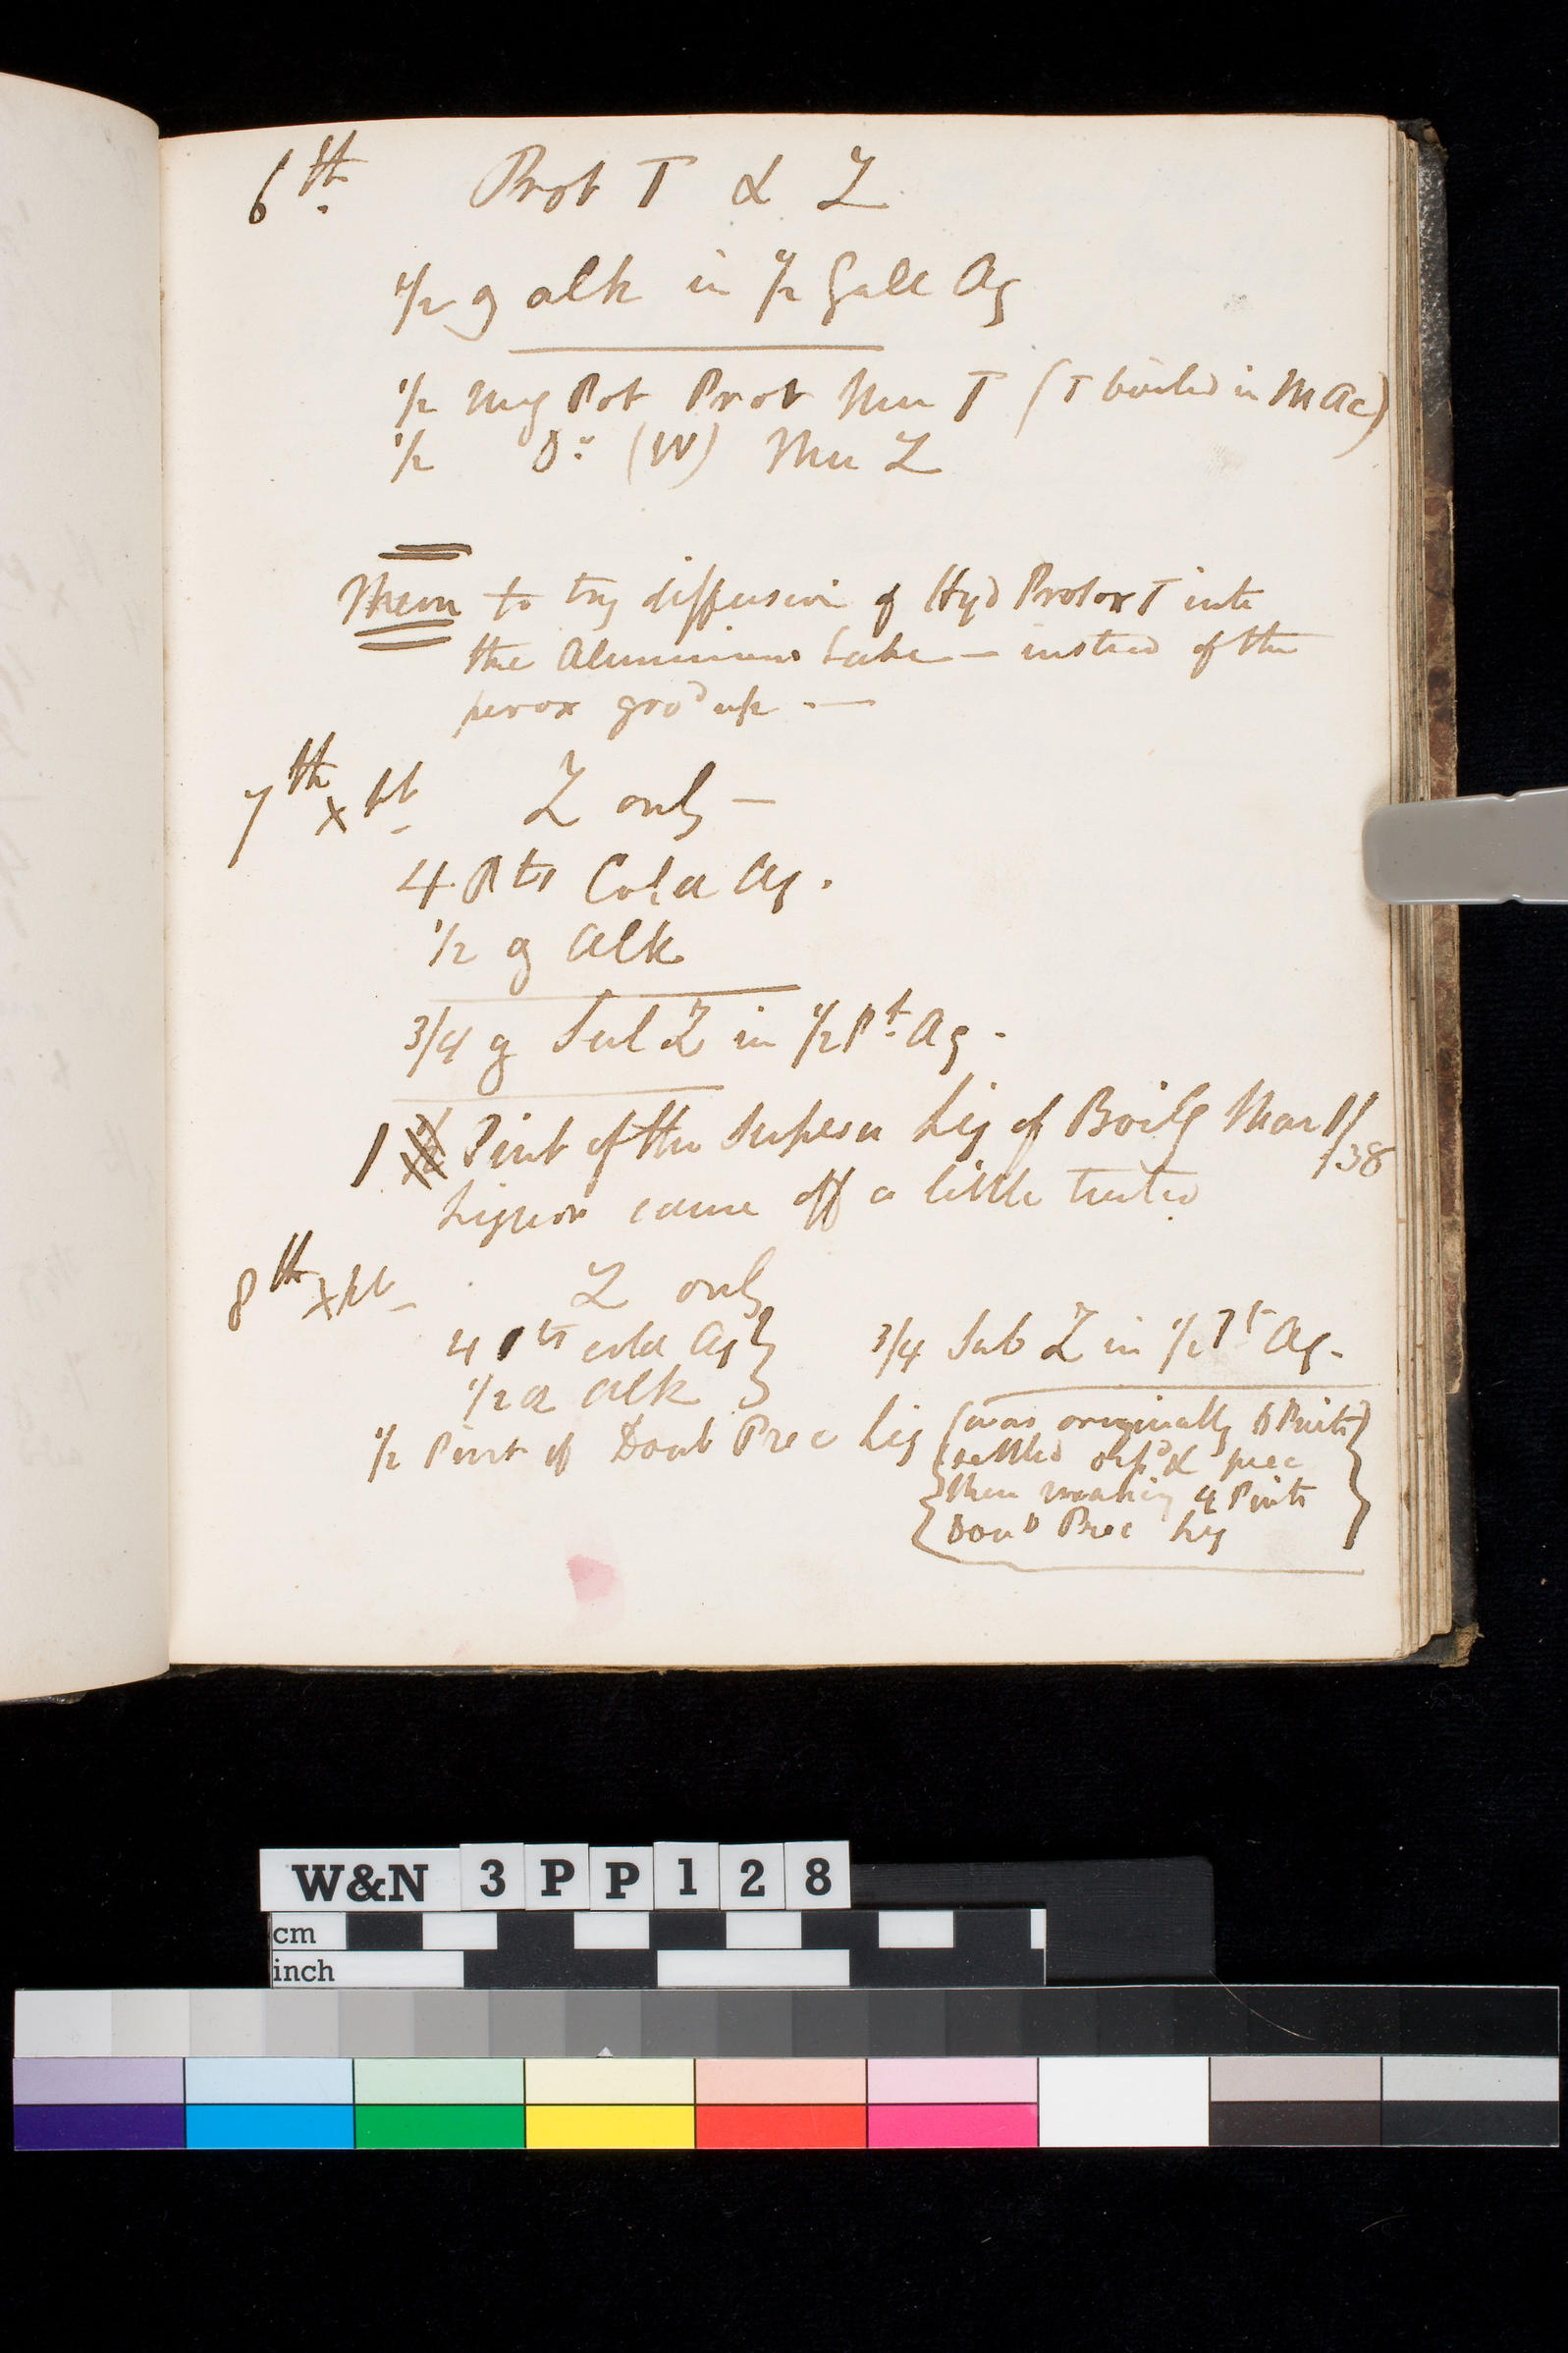 6th. Prot T & Z
1/2 g alk in 1/2 Gall Aq
1/2 Meg Pot Prot Mu T (T boiled in M Ac)
1/2 Do (W) Mu Z
Mem to try diffusion of Hyd Protox T into
the Aluminous Lake — instead of the
perox gro'd up . —
7th xpt Z only —
4 Pts Cold Aq.
1/2 g Alk
3/4 g Sul Z in 1/2 Pt Aq -
1 Pint of the Liq of Boilg Mar 11/38
Liquor came off a little tinted
8th xpt Z only
4 Pts cold Aq
3/4 Sul Z in 1/2 Pt Aq -
1/2 alk
1/2 Pint of Doub Prec Liq
(was originally Pints)
settled & prec
then making 4 Pints
Doub Prec Liq
W&N 3PP128
cm
inch